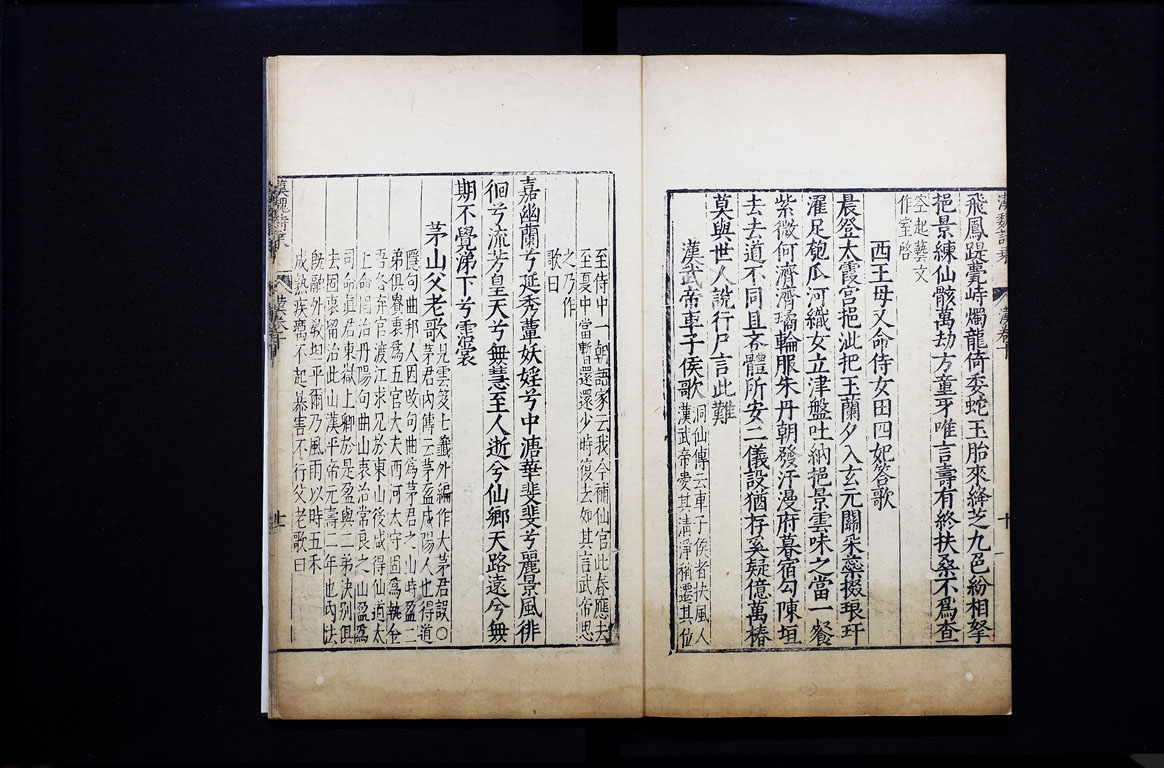 飛鳳踶甍峙燭龍倚委蛇玉胎來絳芝九色紛相拏
挹景練仙骸萬劫方童牙唯言壽有終扶桑不爲查
空起藝文
作室啓
西王母又命侍女田四妃答歌
晨登太霞宫挹此把玉蘭夕入玄元闕采蘂掇琅玕
濯足匏瓜河織女立津盤吐納挹景雲味之當一餐
紫微何濟濟璚輪服朱丹朝發汗漫府暮宿勾陳垣
去去道不同且各體所安二儀設猶存奚疑億萬椿
莫與世人說行尸言此難
漢武帝車子侯歌
洞仙傳云車子侯者扶風人
漢武帝愛其清淨稍遷其位
至侍中一朝語家云我今補仙官此春應去
至夏中當暫還還少時復去如其言武帝思
之乃作
歌曰
嘉幽蘭兮延秀蕈妖婬兮中溏華斐斐兮麗景風徘
徊兮流芳皇天兮無慧至人逝兮仙鄉天路遠兮無
期不覺涕下兮霑裳
茅山父老歌
見雲笈七籤外編作大茅君誤〇
茅君內傳云茅盈咸陽人也得道
隱句曲邦人因改句曲爲茅君之山時盈二
弟俱貴衷爲五官大夫西河太守固爲執金
吾各弃官渡江求兄於東山後咸得仙道太
上命固治丹陽句曲山衷治常良之山盈爲
司命真君東嶽上卿於是盈與二弟決别俱
去固衷留治此山漢平帝元壽二年也內法
既融外敎坦平爾乃風雨以時五禾
成熟疾癘不起暴害不行父老歌曰